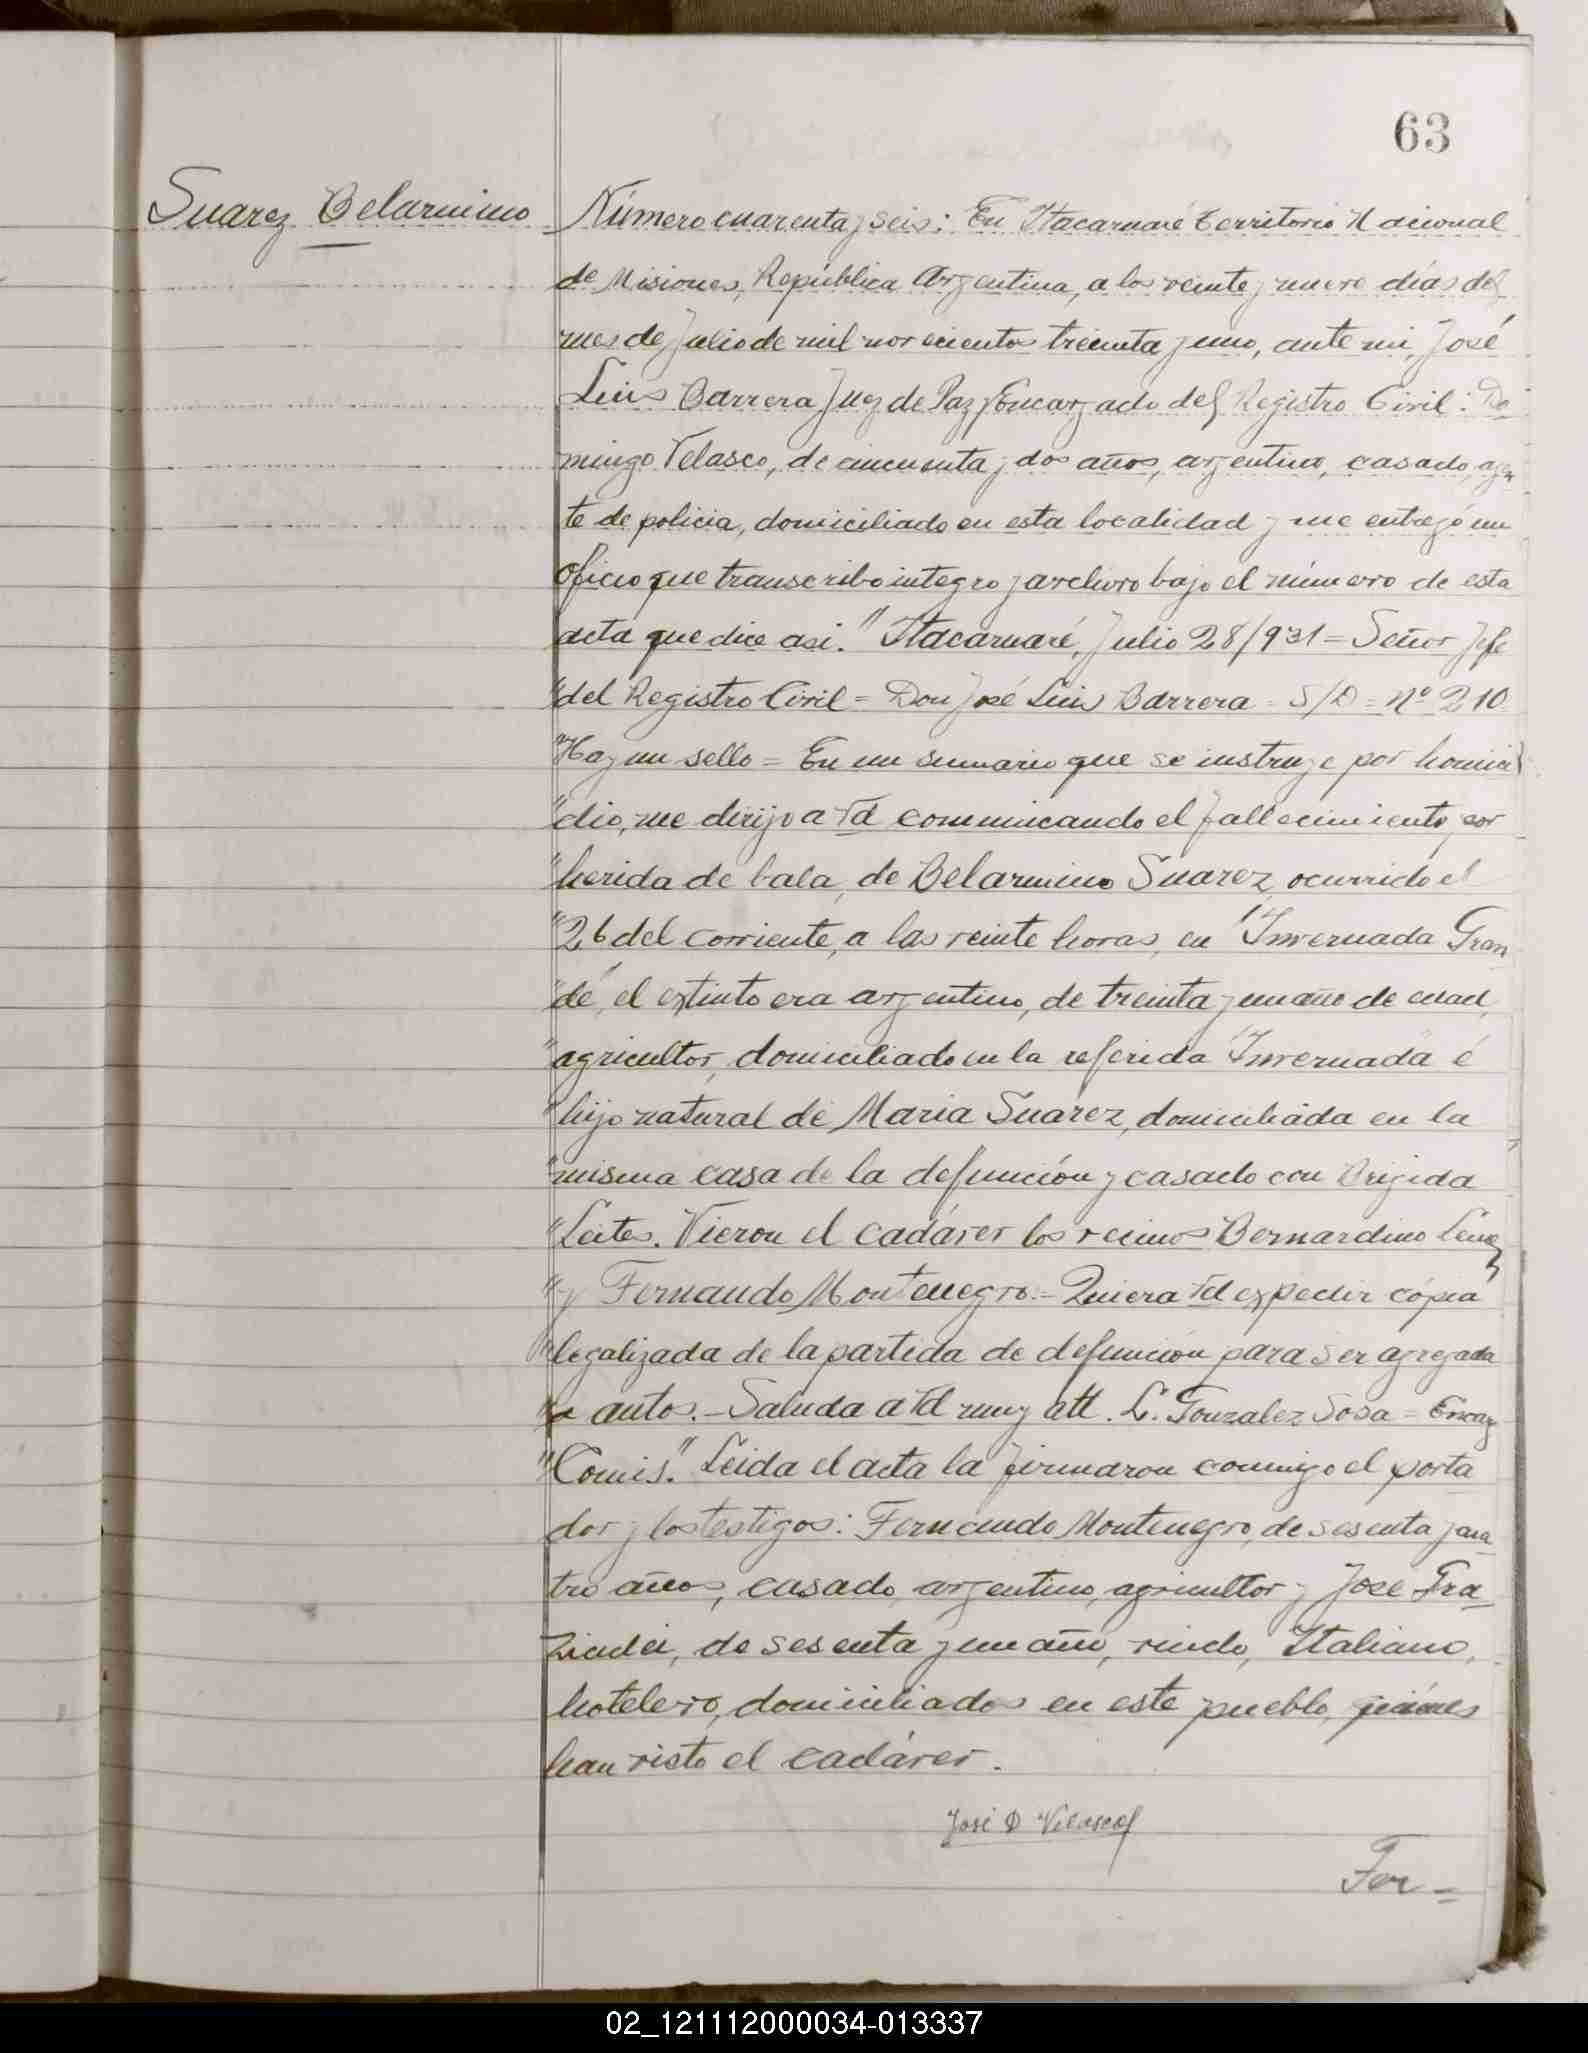 63
Suarez Belarmino
Número cuarenta y seis: En Itacaruaré Territorio Nacional
de Misiones, República Argentina, a los veinte y nueve días del
mes de Julio de mil novecientos treinta y uno, ante mi, José
Luis Barrera Juez de Paz y Encargado del Registro Civil: Do
mingo Velasco, de cincuenta y dos años, argentino, casado, agen
te de policia, domiciliado en esta localidad y me entregó un
oficio que transcribo integro y archivo bajo el número de esta
acta que dice asi: "Itacaruaré, Julio 28/931 = Señor Jefe
"del Registro Civil = Don José Luis Barrera = S/D = Nº 210
"Hay un sello = En un sumario que se instruye por homici
"dio, me dirijo a Vd comunicando el fallecimiento por
"herida de bala, de Belarmino Suarez, ocurrido el
"26 del corriente, a las veinte horas, en "Invernada Gran
"de", el extinto era argentino, de treinta y un año de edad,
"agricultor, domiciliado en la referida "Invernada" é
"hijo natural de Maria Suárez, domiciliada en la
"misma casa de la defunción y casado con Brigida
"Leites. Vieron el cadáver los vecinos Bernardino
"y Fernando Montenegro.- Quiera Vd expedir cópia
"legalizada de la partida de defunción para ser agregada
"a autos.- Saluda a Vd muy att. L. Gonzalez Sosa = Encarg
"Comis." Leida el acta la firmaron conmigo el porta
dor y los testigos: Fernando Montenegro, de sesenta y cua
tro años, casado, argentino, agricultor y José Gra-
ziadei, de sesenta y un año, viudo, Italiano,
hotelero, domiciliados en este pueblo, quiénes
han visto el cadáver.
José D Velasco
Fer=
02_121112000034-013337